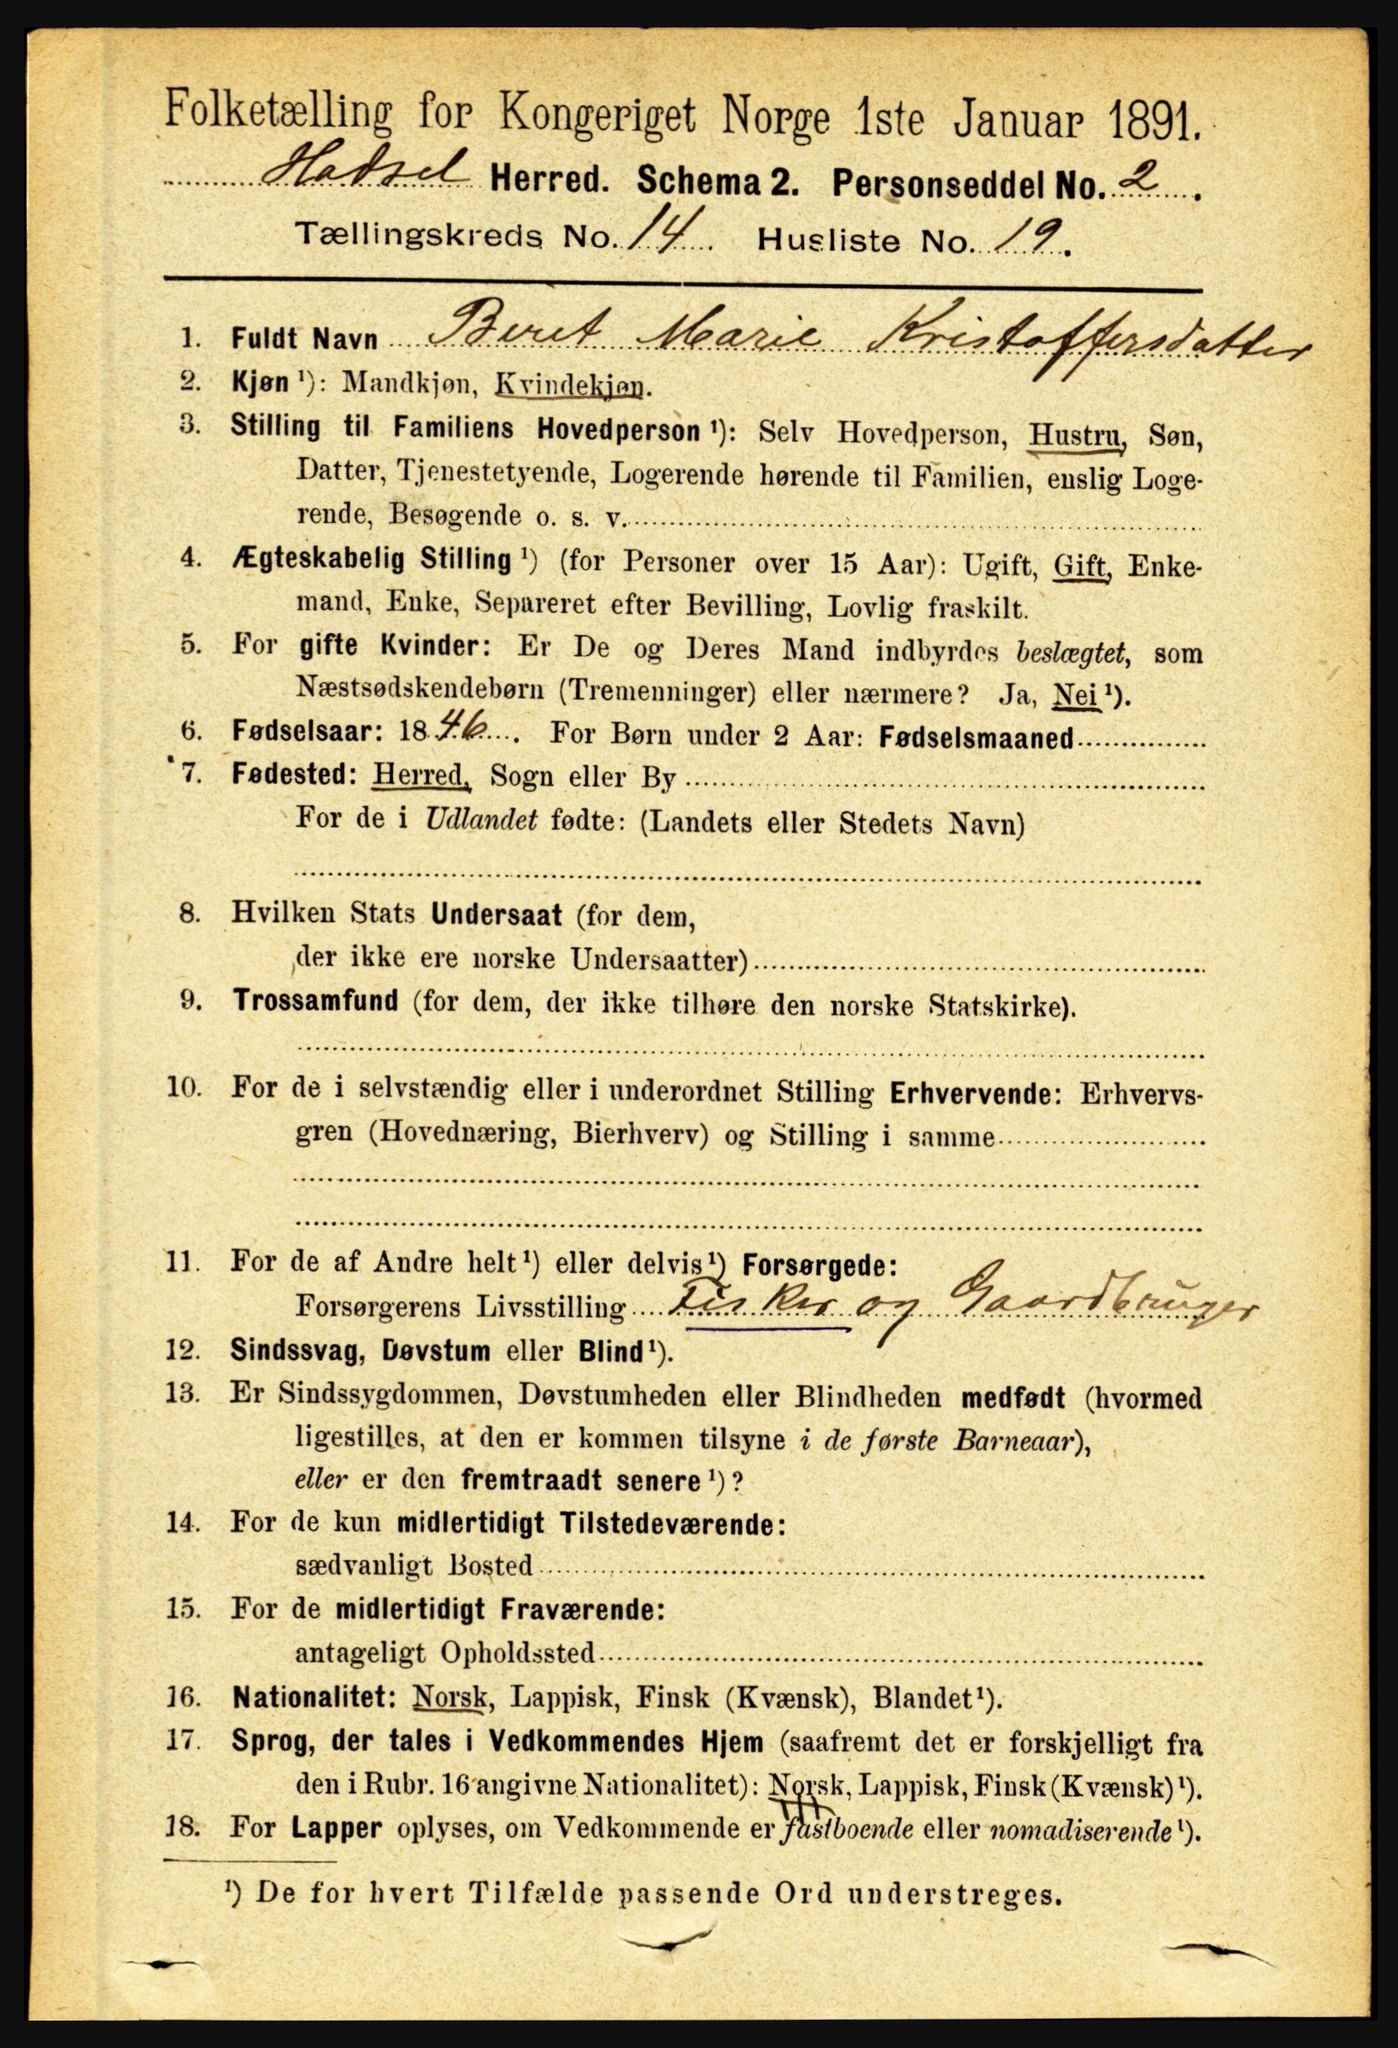 Folketælling for Kongeriget Norge 1ste Januar 1891.
Hadsel Herred. Schema 2. Personseddel No. 2.
Tællingskreds No. 14. Husliste No. 19.
1. Fuldt Navn Beret Marie Kristoffersdatter
2. Kjøn ¹): Mandkjøn, Kvindekjøn.
3. Stilling til Familiens Hovedperson ¹): Selv Hovedperson, Hustru, Søn,
Datter, Tjenestetyende, Logerende hørende til Familien, enslig Loge-
rende, Besøgende o. s. v.
4. Ægteskabelig Stilling ¹) (for Personer over 15 Aar): Ugift, Gift, Enke-
mand, Enke, Separeret efter Bevilling, Lovlig fraskilt.
5. For gifte Kvinder: Er De og Deres Mand indbyrdes beslægtet, som
Næstsødskendebørn (Tremenninger) eller nærmere? Ja, Nei ¹).
6. Fødselsaar: 1846. For Børn under 2 Aar: Fødselsmaaned
7. Fødested: Herred, Sogn eller By
For de i Udlandet fødte: (Landets eller Stedets Navn)
8. Hvilken Stats Undersaat (for dem,
der ikke ere norske Undersaatter)
9. Trossamfund (for dem, der ikke tilhøre den norske Statskirke).
10. For de i selvstændig eller i underordnet Stilling Erhvervende: Erhvervs-
gren (Hovednæring, Bierhverv) og Stilling i samme
11. For de af Andre helt ¹) eller delvis ¹) Forsørgede:
Forsørgerens Livsstilling Fisker og Gaardbruger
12. Sindssvag, Døvstum eller Blind ¹).
13. Er Sindssygdommen, Døvstumheden eller Blindheden medfødt (hvormed
ligestilles, at den er kommen tilsyne i de første Barneaar),
eller er den fremtraadt senere ¹)?
14. For de kun midlertidigt Tilstedeværende:
sædvanligt Bosted
15. For de midlertidigt Fraværende:
antageligt Opholdssted
16. Nationalitet: Norsk, Lappisk, Finsk (Kvænsk), Blandet ¹).
17. Sprog, der tales i Vedkommendes Hjem (saafremt det er forskjelligt fra
den i Rubr. 16 angivne Nationalitet): Norsk, Lappisk, Finsk (Kvænsk) ¹).
18. For Lapper oplyses, om Vedkommende er fastboende eller nomadiserende ¹).
¹) De for hvert Tilfælde passende Ord understreges.